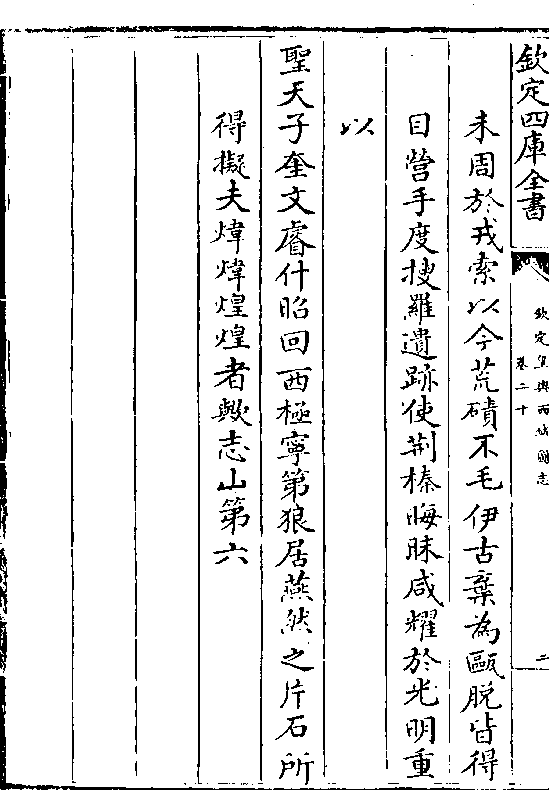 欽定四庫全書
欽定皇輿西域圖志
卷二十
二
未周於戎索以今荒磧不毛伊古棄為甌脱皆得
目營手度搜羅遺跡使荆榛晦昧咸耀於光明重
以
聖天子奎文睿什昭回西極寧第狼居燕然之片石所
得擬夫煒煒煌煌者歟志山第六